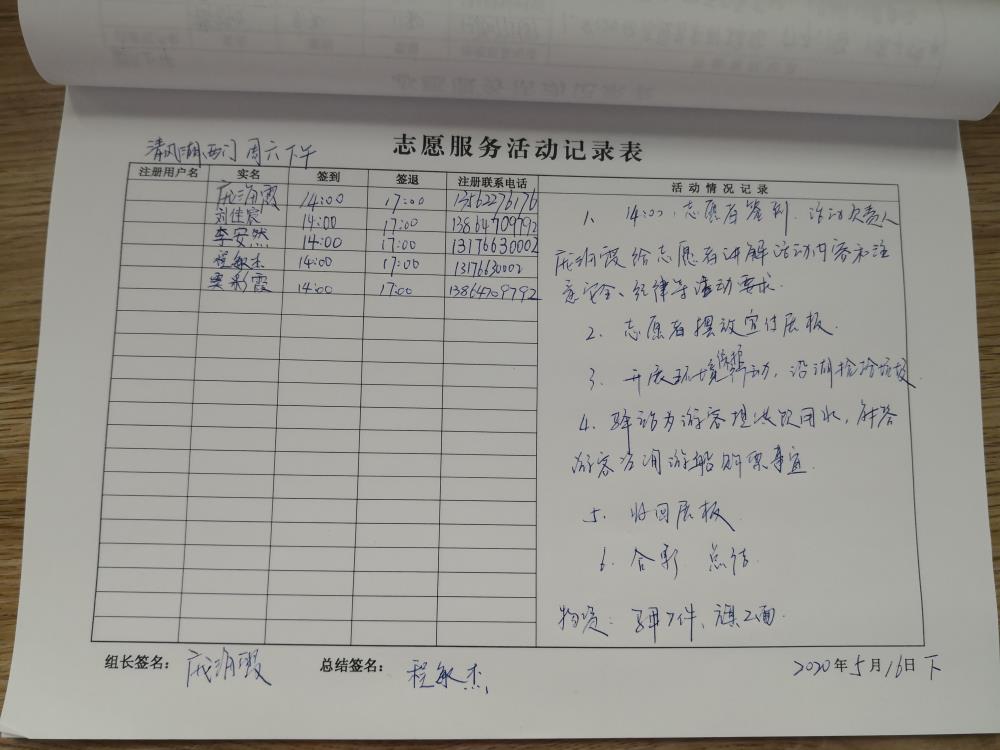 志愿服务活动记录表
清风湖西门 周六下午
注册用户名 实名 签到 签退 注册联系电话 活动情况记录
14:00 17:00 13562276176
刘佳宸 14:00 17:00 13864709792
李安然 14:00 17:00 13176630002
程敏杰 14:00 17:00 13176630002
彩霞 14:00 17:00 13864709792
1. 14:00,志愿者签到.活动负责人
霞给志愿者讲解活动内容和注
意安全、纪律等活动要求.
2. 志愿者摆放宣传展板.
3. 开展环境保护行动,沿湖捡拾垃圾.
4. 驿站为游客提供饮用水,解答
游客咨询游船购票事宜.
5. 收回展板
6. 合影 总结.
物资: 7件、旗2面.
组长签名: 总结签名: 程敏杰
2020年5月16日下